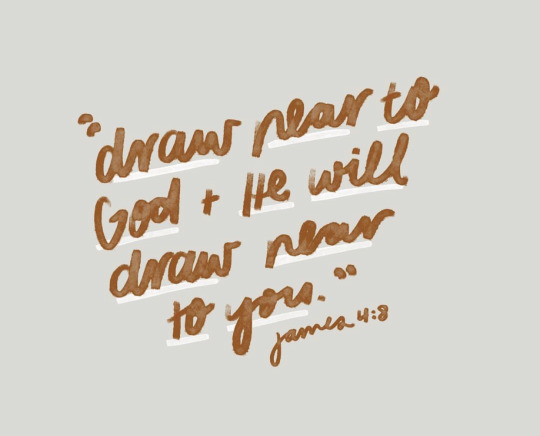 "draw near to
God + He will
draw near
to you."
james 4:8